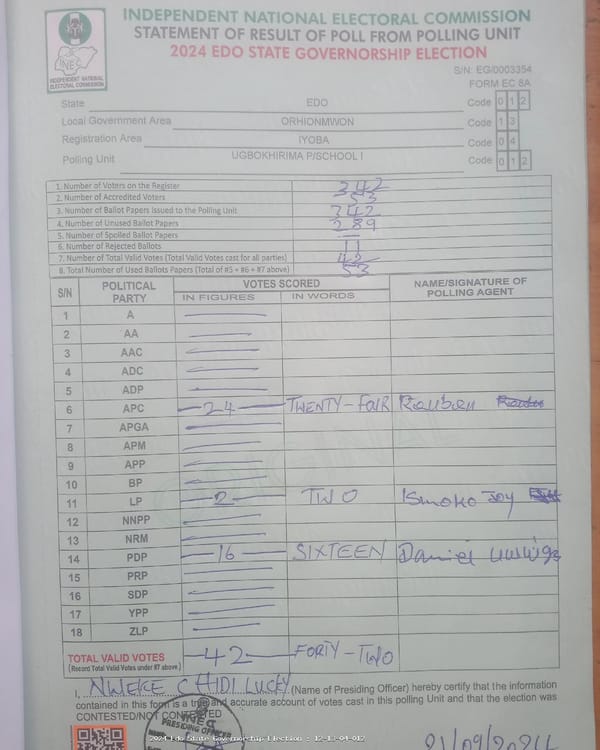 INDEPENDENT NATIONAL ELECTORAL COMMISSION
STATEMENT OF RESULT OF POLL FROM POLLING UNIT
2024 EDO STATE GOVERNORSHIP ELECTION
INEC
INDEPENDENT NATIONAL
ELECTORAL COMMISSION
S/N: EG/0003354
FORM EC 8A
State EDO Code 0 1 2
Local Government Area ORHIONMWON Code 1 3
Registration Area IYOBA Code 0 4
Polling Unit UGBOKHIRIMA P/SCHOOL I Code 0 1 2
1. Number of Voters on the Register 342
2. Number of Accredited Voters 53
3. Number of Ballot Papers Issued to the Polling Unit 342
4. Number of Unused Ballot Papers 289
5. Number of Spoiled Ballot Papers —
6. Number of Rejected Ballots 11
7. Number of Total Valid Votes (Total Valid Votes cast for all parties) 42
8. Total Number of Used Ballots Papers (Total of #5 + #6 + #7 above) 53
S/N POLITICAL PARTY VOTES SCORED NAME/SIGNATURE OF POLLING AGENT
IN FIGURES IN WORDS
1 A —
2 AA —
3 AAC —
4 ADC —
5 ADP —
6 APC —24— TWENTY-FOUR
7 APGA —
8 APM —
9 APP —
10 BP —
11 LP —2— TWO Ismoko Joy
12 NNPP —
13 NRM —
14 PDP —16— SIXTEEN Daniel
15 PRP —
16 SDP —
17 YPP —
18 ZLP —
TOTAL VALID VOTES —42— FORTY-TWO
(Record Total Valid Votes under #7 above)
I, NWEKE CHIDI LUCKY (Name of Presiding Officer) hereby certify that the information
contained in this form is a true and accurate account of votes cast in this polling Unit and that the election was
CONTESTED/NOT CONTESTED
INEC
PRESIDING OFFICER
2024 Edo State Governorship Election : 12-13-04-012
21/09/2024